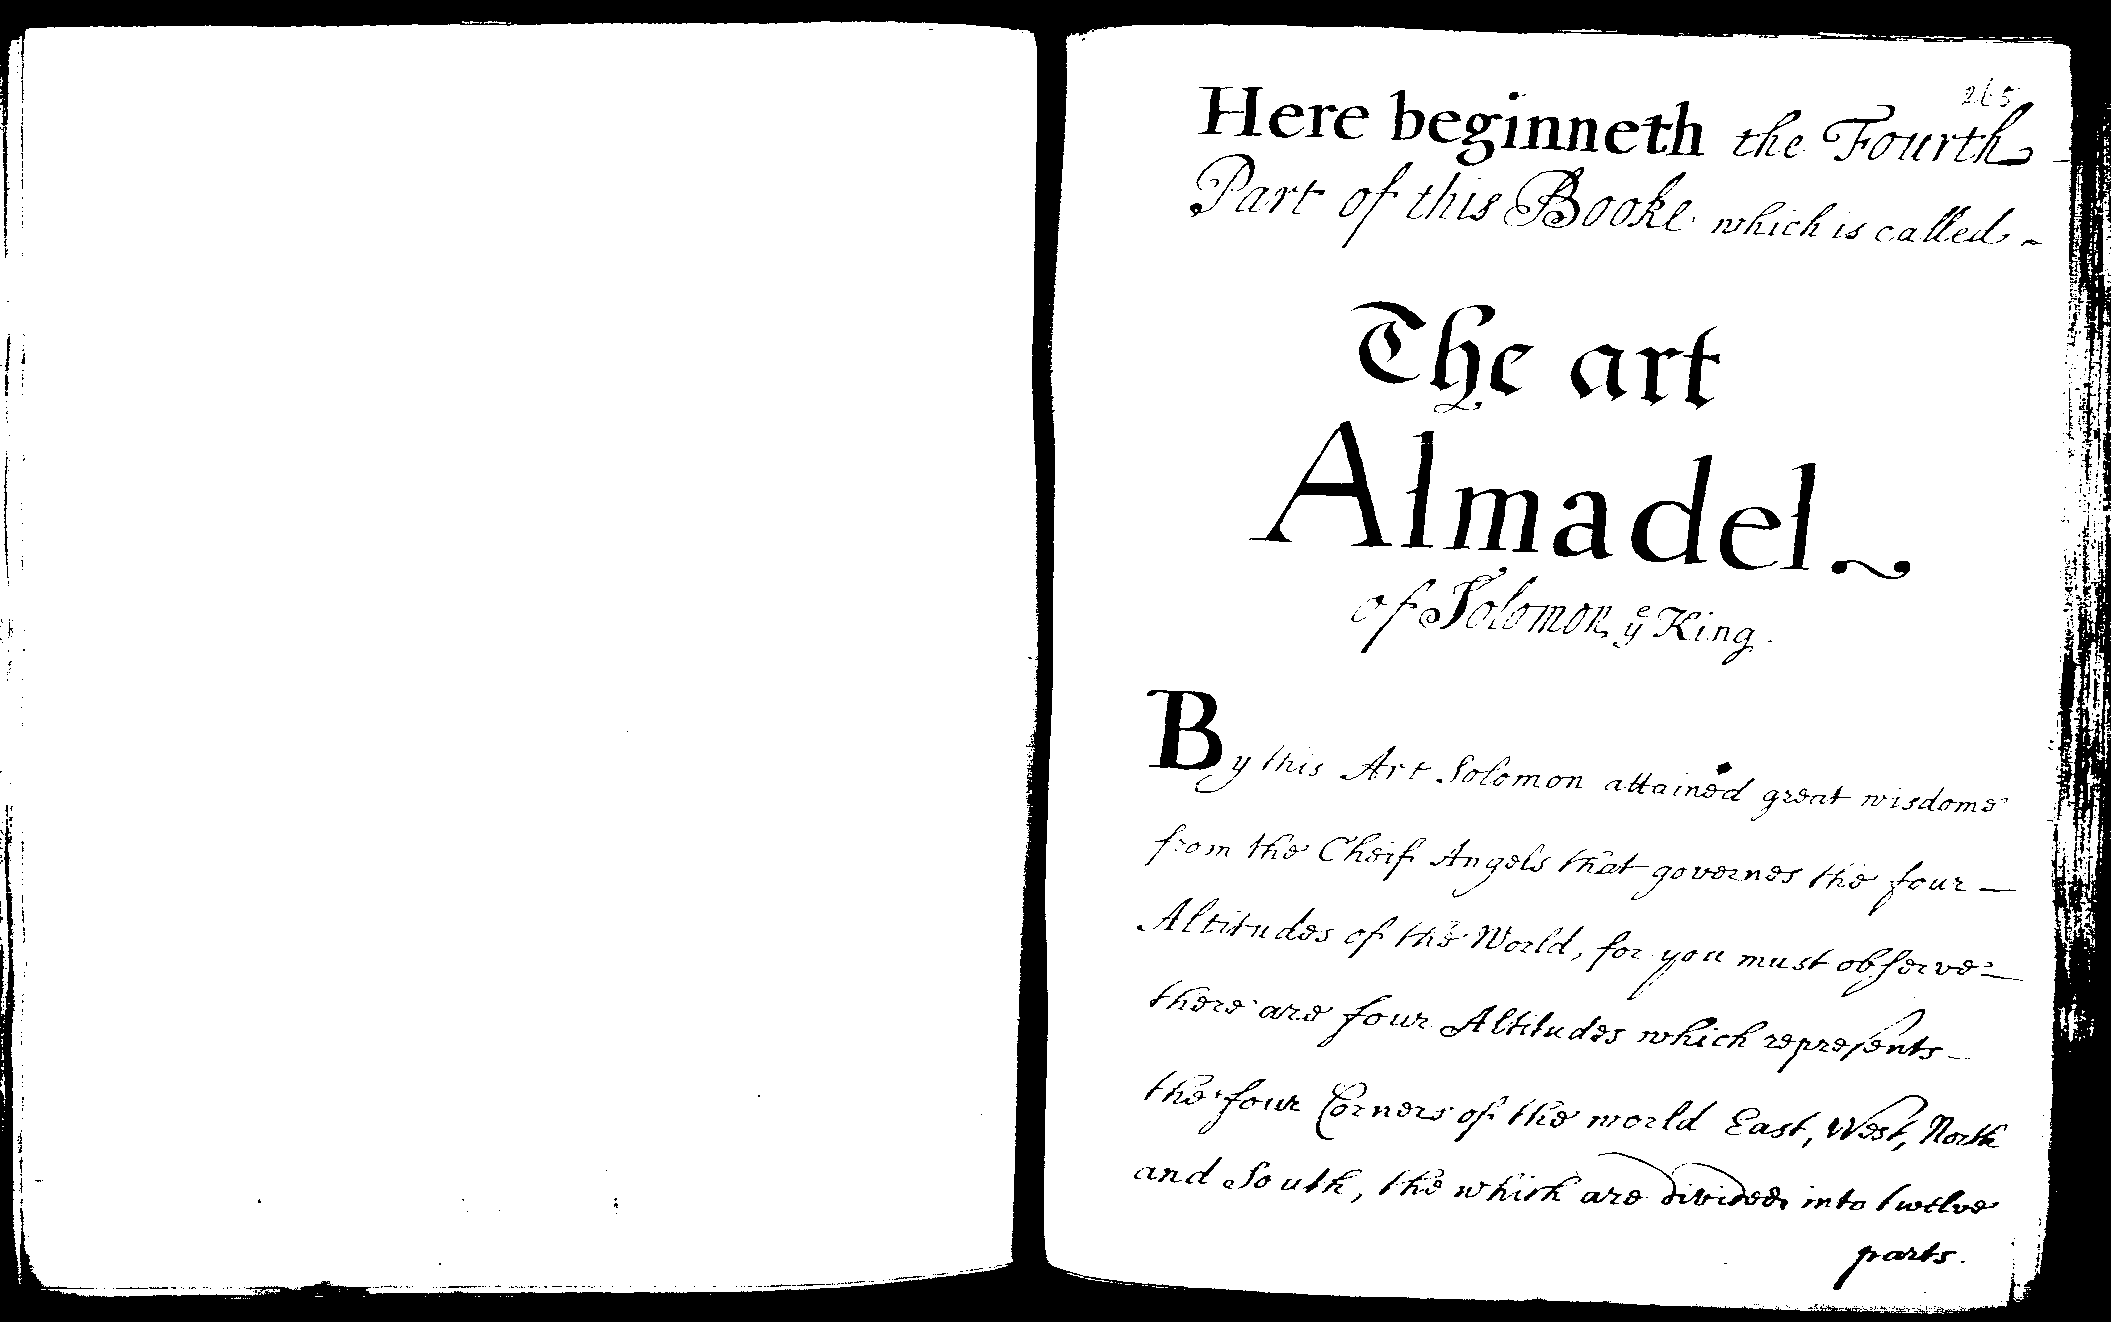 265
Here beginneth the Fourth
Part of this Booke which is called
The art
Almadel
of Solomon yͤ King.
By this Art Solomon attained great wisdome
from the Cheif Angels that governes the four —
Altitudes of the World, for you must observe —
there are four Altitudes which represents —
the four Corners of the world East, West, North
and South, the which are divided into twelve
parts.